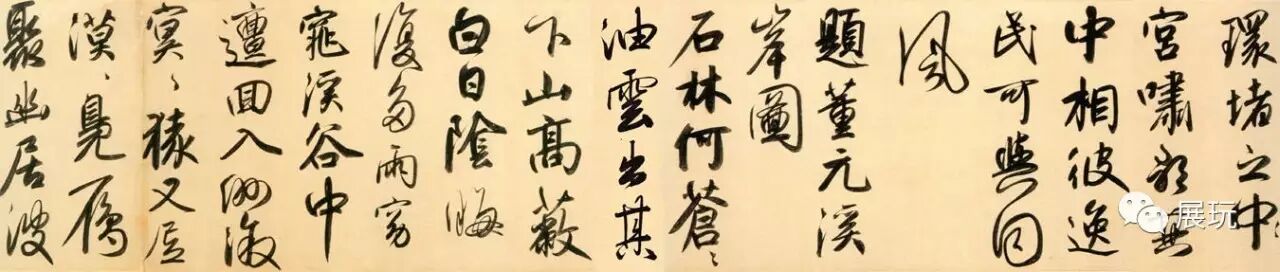 環堵之中ゝ
宮嘯
中相彼逸
民可與同
風
題董元溪
岸圖
石林何蒼ゝ
油雲出其
下山高蔽
白日陰晦
復多雨窈
窕溪谷中
邅回入洲漵
冥ゝ猿又居
漠ゝ鳧雁
聚幽居
展玩